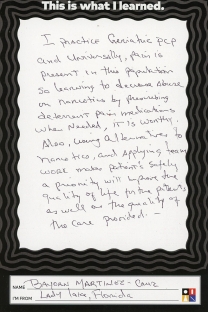 This is what I learned.
I practice Geriatric PCP
and Universally, pain is
present in this population
So learning to decrease abuse
on narcotics by prescribing
deterrant pain medications
when needed, it is worthy.
Also, using alternatives to
narcotics, and applying team
work make patient's safety
a priority will improve the
quality of life for the patients
as well as the quality of
the care provided. -
NAME
MARTINEZ-CRUZ
I'M FROM
Lady Lake, Florida